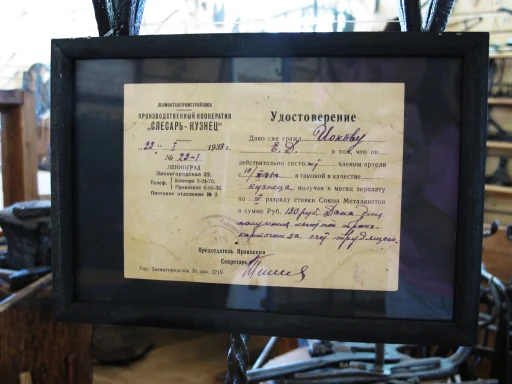 ПРОИЗВОДСТВЕННЫЙ КООПЕРАТИВ
„СЛЕСАРЬ-КУЗНЕЦ“
„23“ I 1933 г.
№ 23-1
ЛЕНИНГРАД
Звенигородская 30.
Телеф. Контора 5-24-70.
Правление 5-56-36.
Почтовое отделение № 2
Удостоверение
Дано сие гражд. Ионову
Е. Д. в том, что он
действительно состоит членом артели
с 10/ в таковой в качестве
кузнеца получая в месяц зарплату
по разряду ставки Союза Металлистов
в сумме Руб. 130 руб. Дана для
получения
карточки за счет трудящего.
Председатель Правления
Секретарь
Тип. Звенигородская 30, Зак. 2719.